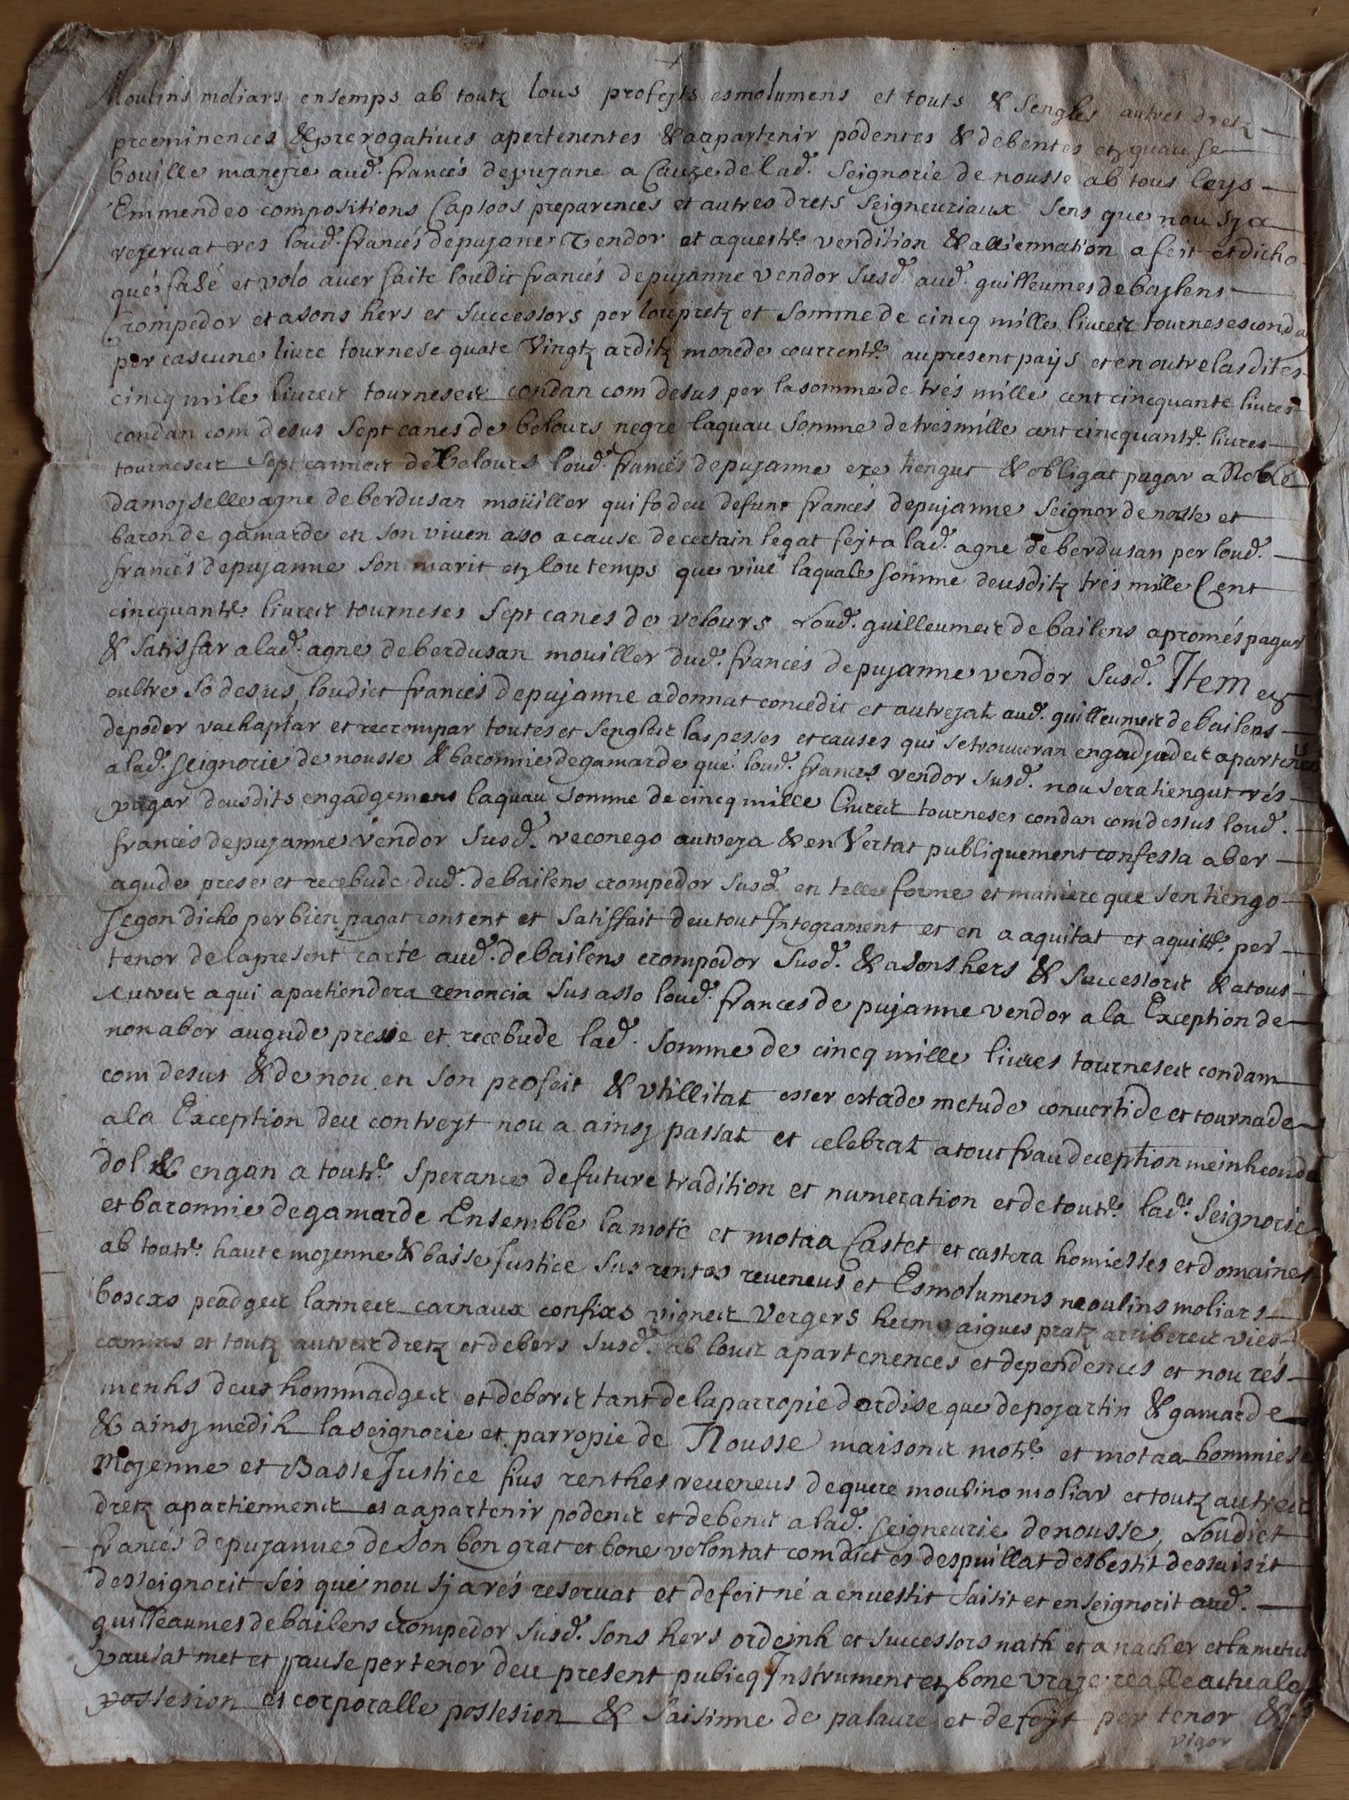 Moulins moliars ensemps ab toutz lous profeyts esmolumens et touts & sengles autres dretz
preeminences & prerogatiues apertenentes & a apartenir podentes & debentes et quau se
bouille maneyre aud. francés depujane a Cauze de lad. Seignorie de nousse ab tous leys
Emmendes compositions Capsoos preparences et autres drets Seigneuriaux Sens que nou sya
reseruat res loud. francés depujane Vendor et aqueste vendition & alliennation a feit et dicho
que fasé et volo auer faite loudit francés depujanne vendor Susd. aud. guilleumes debaylens
Crompedor et a sons hers et Successors per lou pretz et Somme de cincq mille liureir tourneses conda
per cascune liure tournese quate Vingtz arditz monede courrente au present pays et en outre lasdites
cincq mile liureir tourneseir condan com desus per la somme de trés mille cent cincquante liures
condan com desus Sept canes de belours negre laquau Somme de tresmille cent cincquante liures
tourneseir Sept canneir de Belours loud. francés depujanne ere tiengut & obligat pagar a Noble
damoyselle agne de berdusan moüiller qui fo deu defunt francés depujanne Seignor de nousse et
baron de gamarde en son viuen asso a cause de certain legat feyt a lad. agne de berdusan per loud.
francés depujanne son marit et lou temps que viue laquale Somme deusditz trés mille Cent
cincquante liureir tourneses Sept canes de velours Loud. guilleumeir de bailens a promés pagar
& Satisfar a lad. agne de berdusan mouiller dud. francés depujanne vendor Susd. Item et
oultre so desus loudict francés depujanne a donnat concedit et autrejat aud. guilleumeir de bailens
de poder rachaptar et recrompar toutes et Sengleir las pesses et causes qui se trouueran engadjadeir aparten
a lad. Seignorie de nousse & baronnie de gamarde que loud. francés vendor Susd. nou sera tiengut rés
pagar deusdits engadgemens laquau Somme de cincq mille liureir tourneses condan com dessus loud.
francés depujanne vendor Susd. reconego autreja & en Vertat publiquement confessa aber
agude prese et recebude dud. de bailens crompedor Susd. en telle forme et maniere que sen tiengo
Segon dicho per bien pagat content et Satisfait deu tout Integrament et en a aquitat et aquitte per
tenor de la present carte aud. de bailens crompedor Susd. & a sons hers & Successorir & a tous
autreir a qui apartiendera renoncia Sus asso loud. frances de pujanne vendor a la Exception de
non aber augude presse et recebude lad. Somme de cincq mille liures tourneseir condam
com desus & de nou en son profeit & vtillitat esser estade metude conuertide et tournade
a la Exception deu contreyt nou a ainsy passat et celebrat a tout frau deception meinhconde
dol & engan a toute Sperance de future tradition et numeration et de toute lad. Seignorie
et baronnie de gamarde Ensemble la mote et motaa Castet et castera homiesses et domaines
ab toute haute mojenne & baisse Justice Sus rentes reueneus et Esmolumens moulins moliars
boscxs peadgeir lanneir carnaux confixs vigneir Vergers herms aigues pratz arribereir vies
camins et toutz autreir dretz et debers Susd. ab louir apartenences et dependences et nou rés
menhs deus hommadgeir et deborir tant de la parropie dordise que de pojartin & gamarde
& ainsy medih la seignorie et parropie de Nousse maisonir mote et motaa hommiese
Mojenne et Basse Justice fius renthes reueneus de quere moulino moliar et toutz autreir
dretz apartiennenir et a apartenir podenir et debenir a lad. seigneurie de nousse, Loudict
francés depujanne de Son bon grat et bone volontat com dict es despuillat desbestit dessaisit
desseignorit sés que nou sy a rés reseruat et de feit ne a enuestit Saisit et enseignorit aud.
guilleaumes de bailens crompedor Susd. Sons hers ordeinh et successors nath et a nacher et la metut
pausat met et pause per tenor deu present publicq Instrument et bone vraye realle actuale
possesion et corporalle possesion & Saisinne de paraule et de feyt per tenor &
vigor